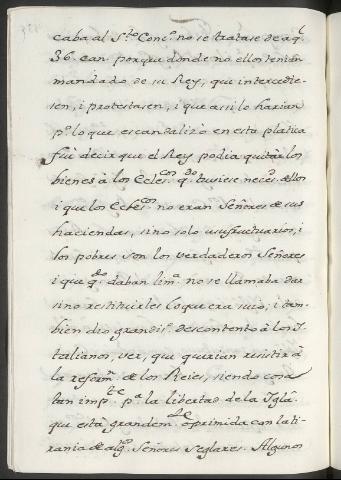 caba al S.to Conc.o no se tratase de aq.
36. can. porque donde no ellos tenian
mandado de su Rey, que intercedie-
sen, i protestasen, i que assi lo harian
p.o lo que escandalizò en esta platica
fuè decir que el Rey podia quitàr los
bienes à los Ecles.cos q.do tubiese neces. de ellos
i que los Ecles.cos no eran Señores de sus
haciendas, sino solo usufructuarios, i
los pobres son los verdaderos Señores
i que q.do daban lim.a no se llamaba dar
sino restituirles lo que era suio, i tam-
bien dio grandis.o descontento à los I-
talianos, ver, que querian resistir à
la reform.n de los Reies, siendo cosa
tan imp.te p.a la libertad de la Igl.a
que està grandem.te oprimida con la ti-
rania de alg.s Señores Seglares. Algunos